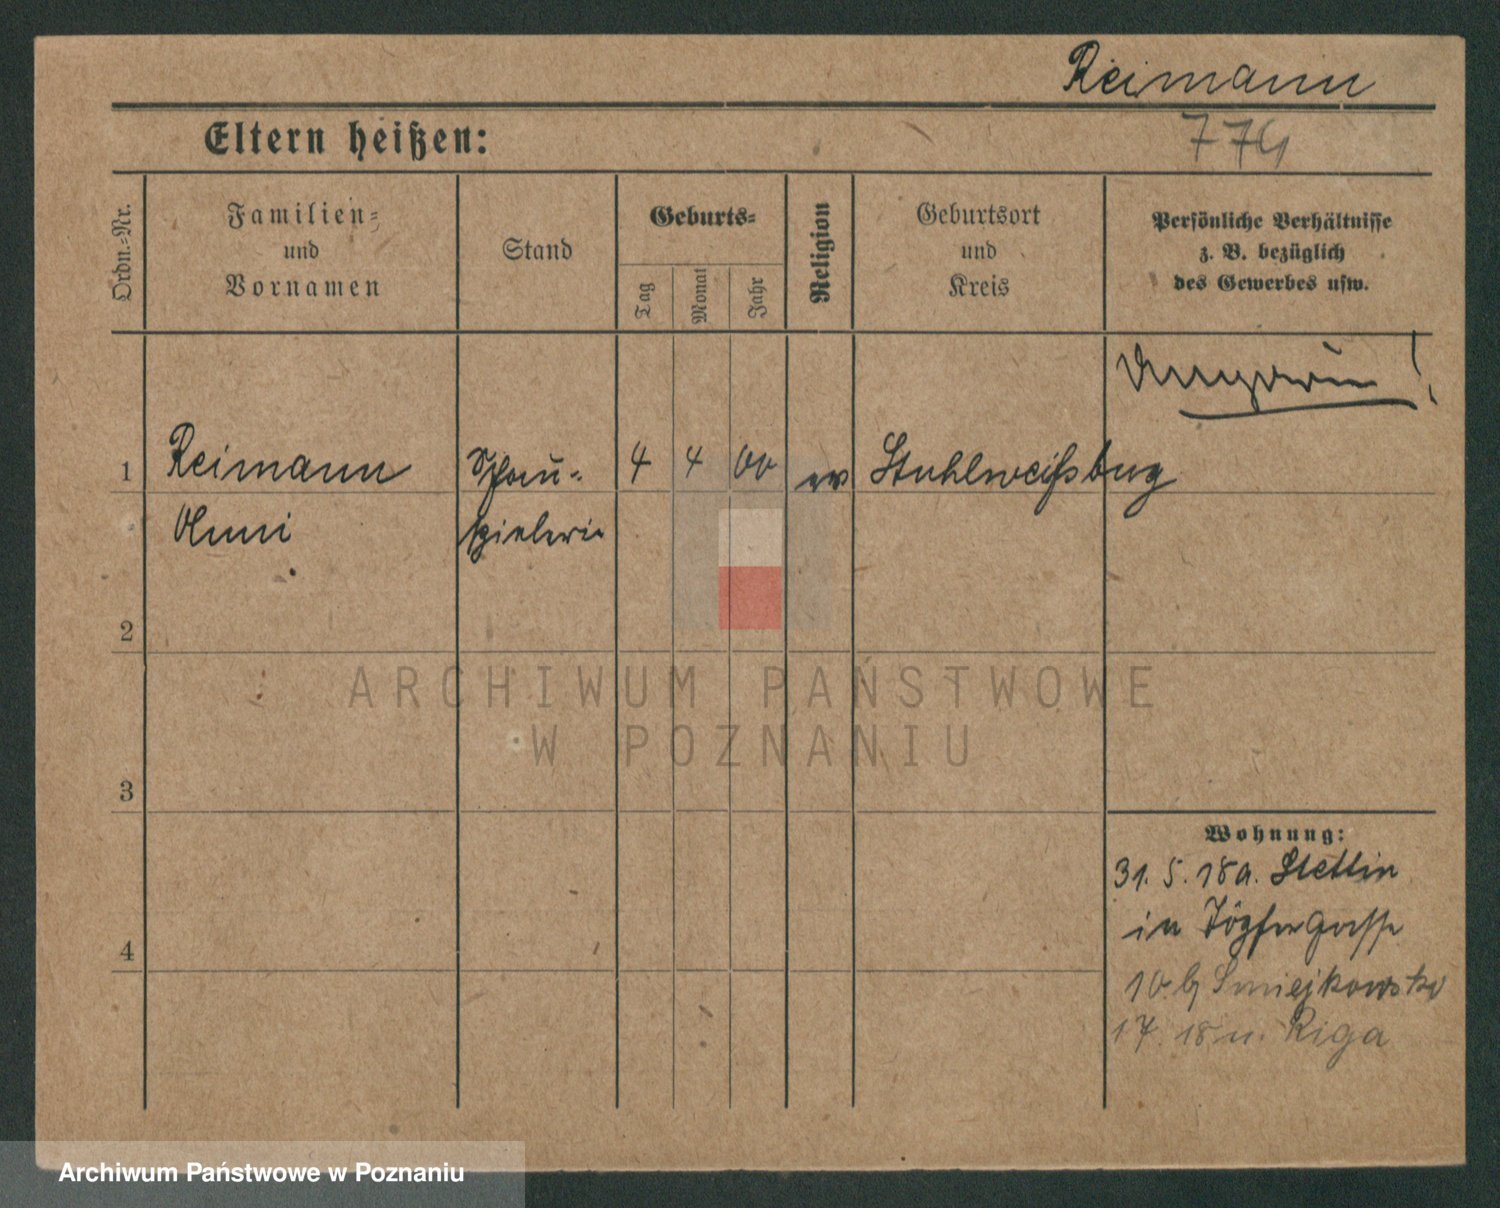 Reimann
Eltern heißen:
774
Ordn.=Nr.
Familien=
und
Vornamen
Stand
Geburts=
Tag
Monat
Jahr
Religion
Geburtsort
und
Kreis
Persönliche Verhältnisse
z. B. bezüglich
des Gewerbes usw.
Ungarin!
1 Reimann Schau- 4 4 00 ev Stuhlweißbug
spielerin
2
3
4
Wohnung:
31. 5. 18 a. Stettin
in Töpfergasse
10. b/ Smiejkowska
17. 18 n. Riga
ARCHIWUM PAŃSTWOWE
W POZNANIU
Archiwum Państwowe w Poznaniu